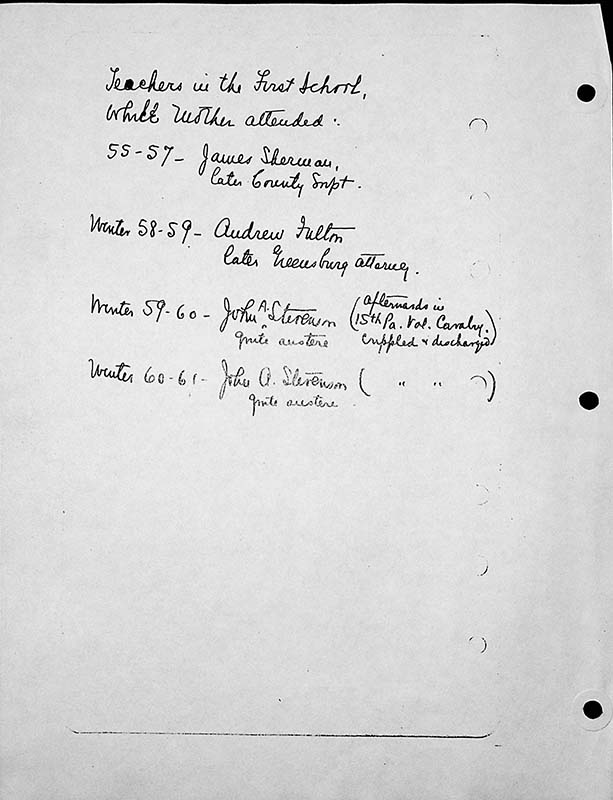 Teachers in the First School,
While Mother attended:
55-57- James Sherman,
later County Supt.
Winter 58-59- Andrew Fulton
later Greensburg attorney.
Winter 59-60- John A. Stevenson (afterwards in
15th Pa. Vol. Cavalry.
quite austere crippled & discharged)
Winter 60-61- John A. Stevenson ( " " )
quite austere